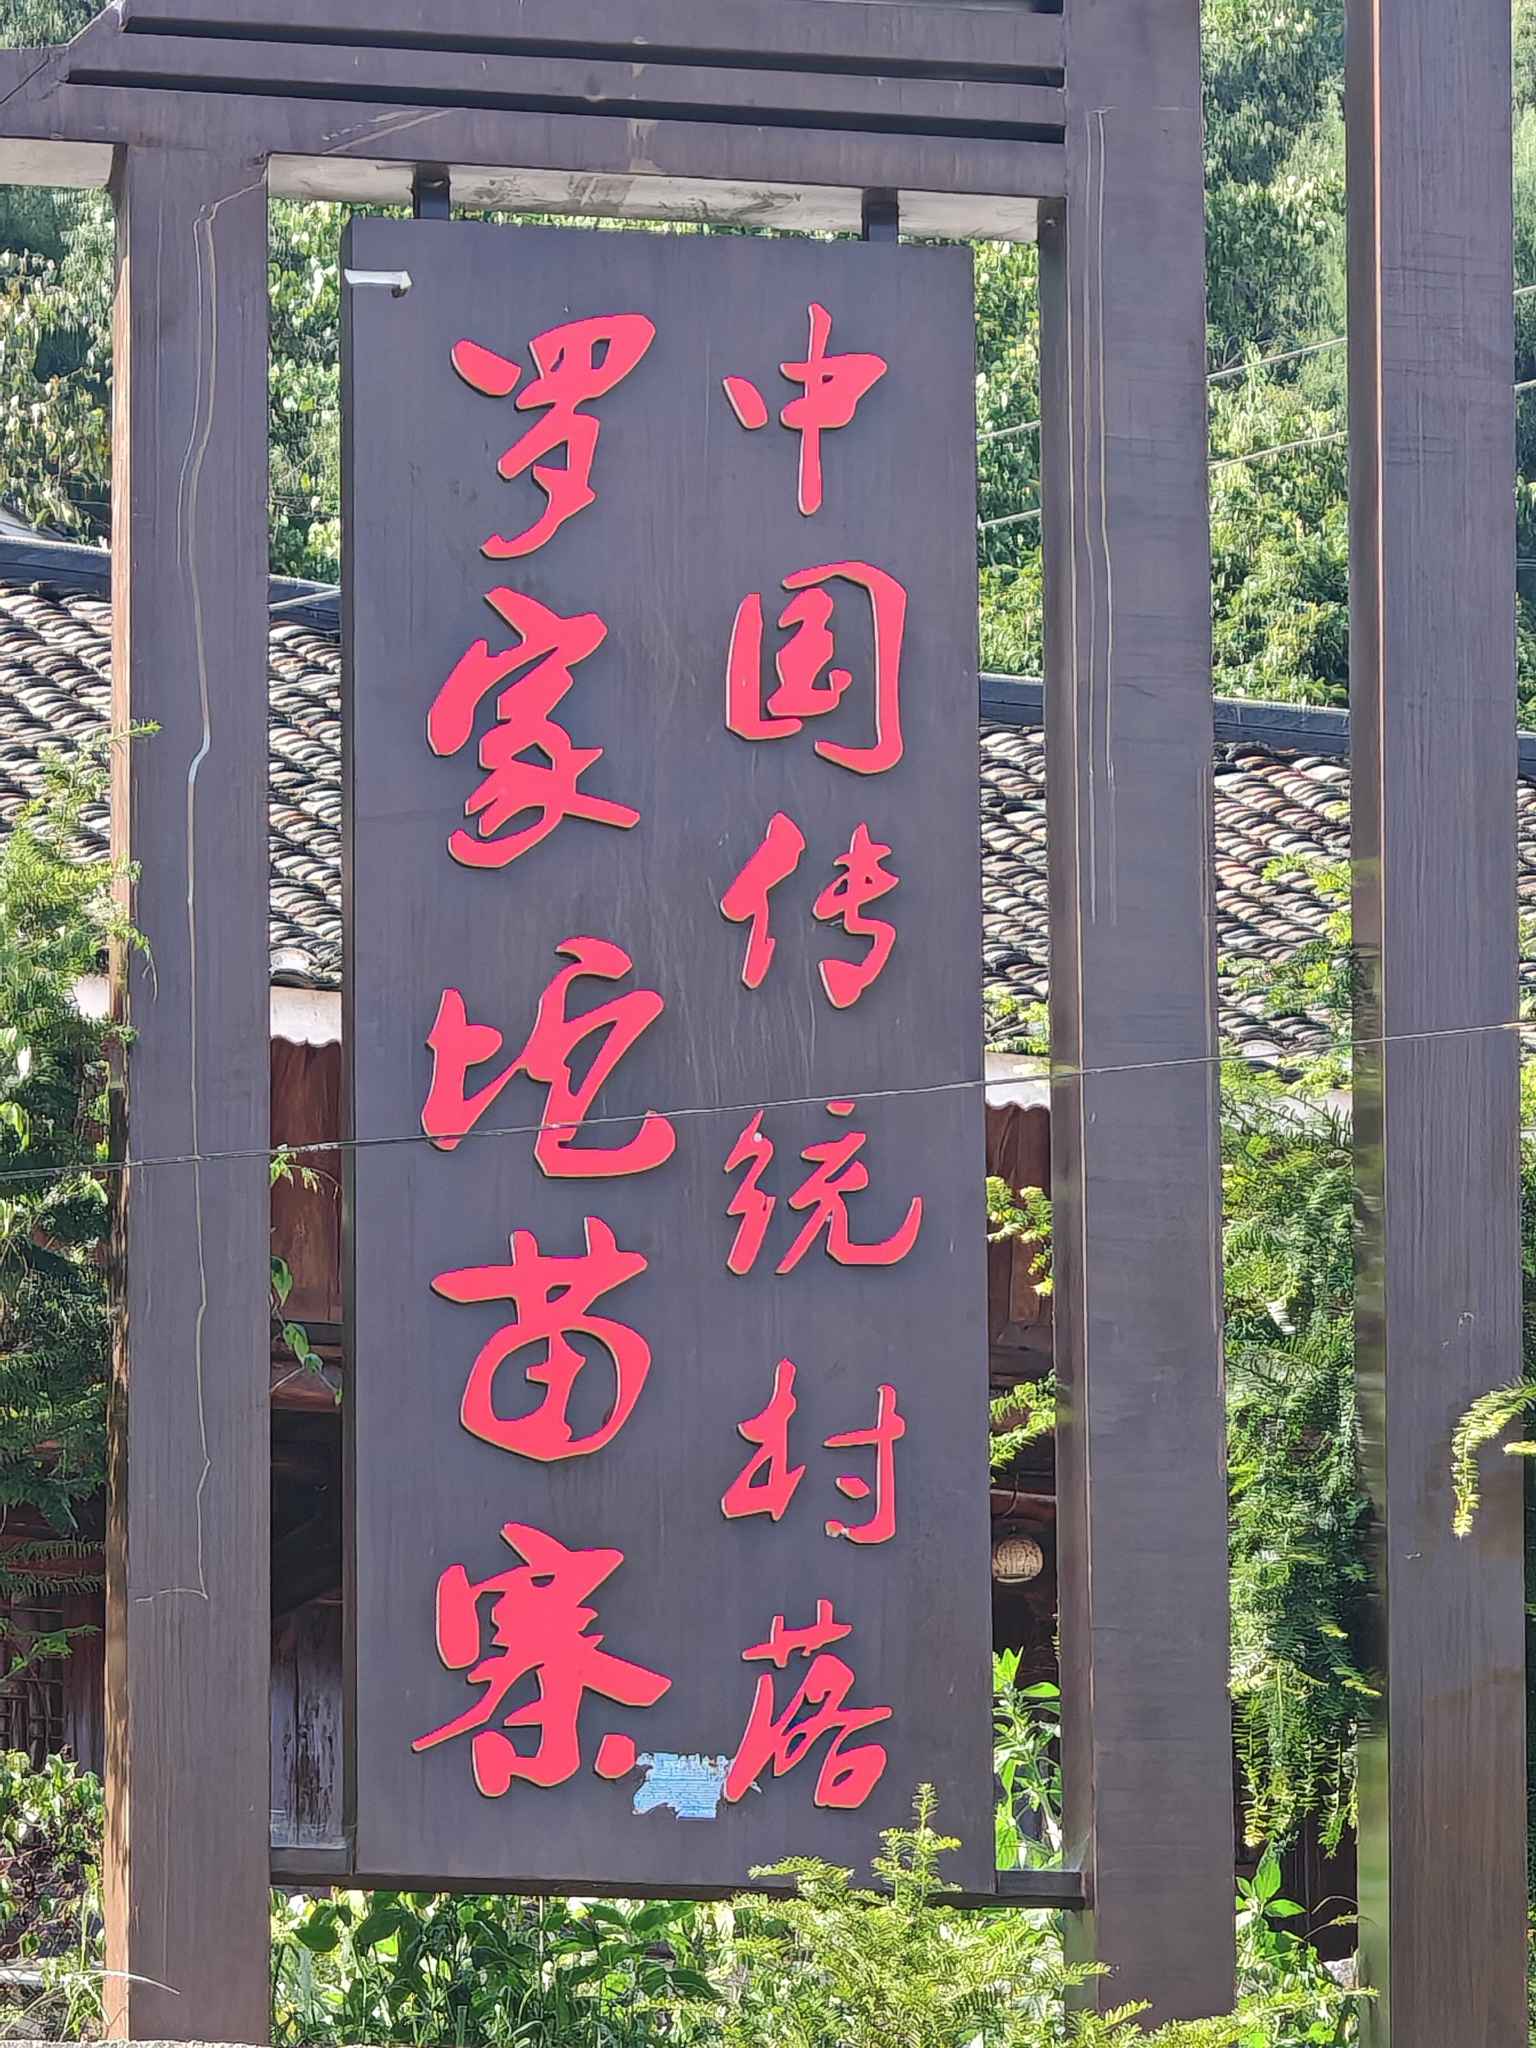 中国传统村落
罗家坨苗寨